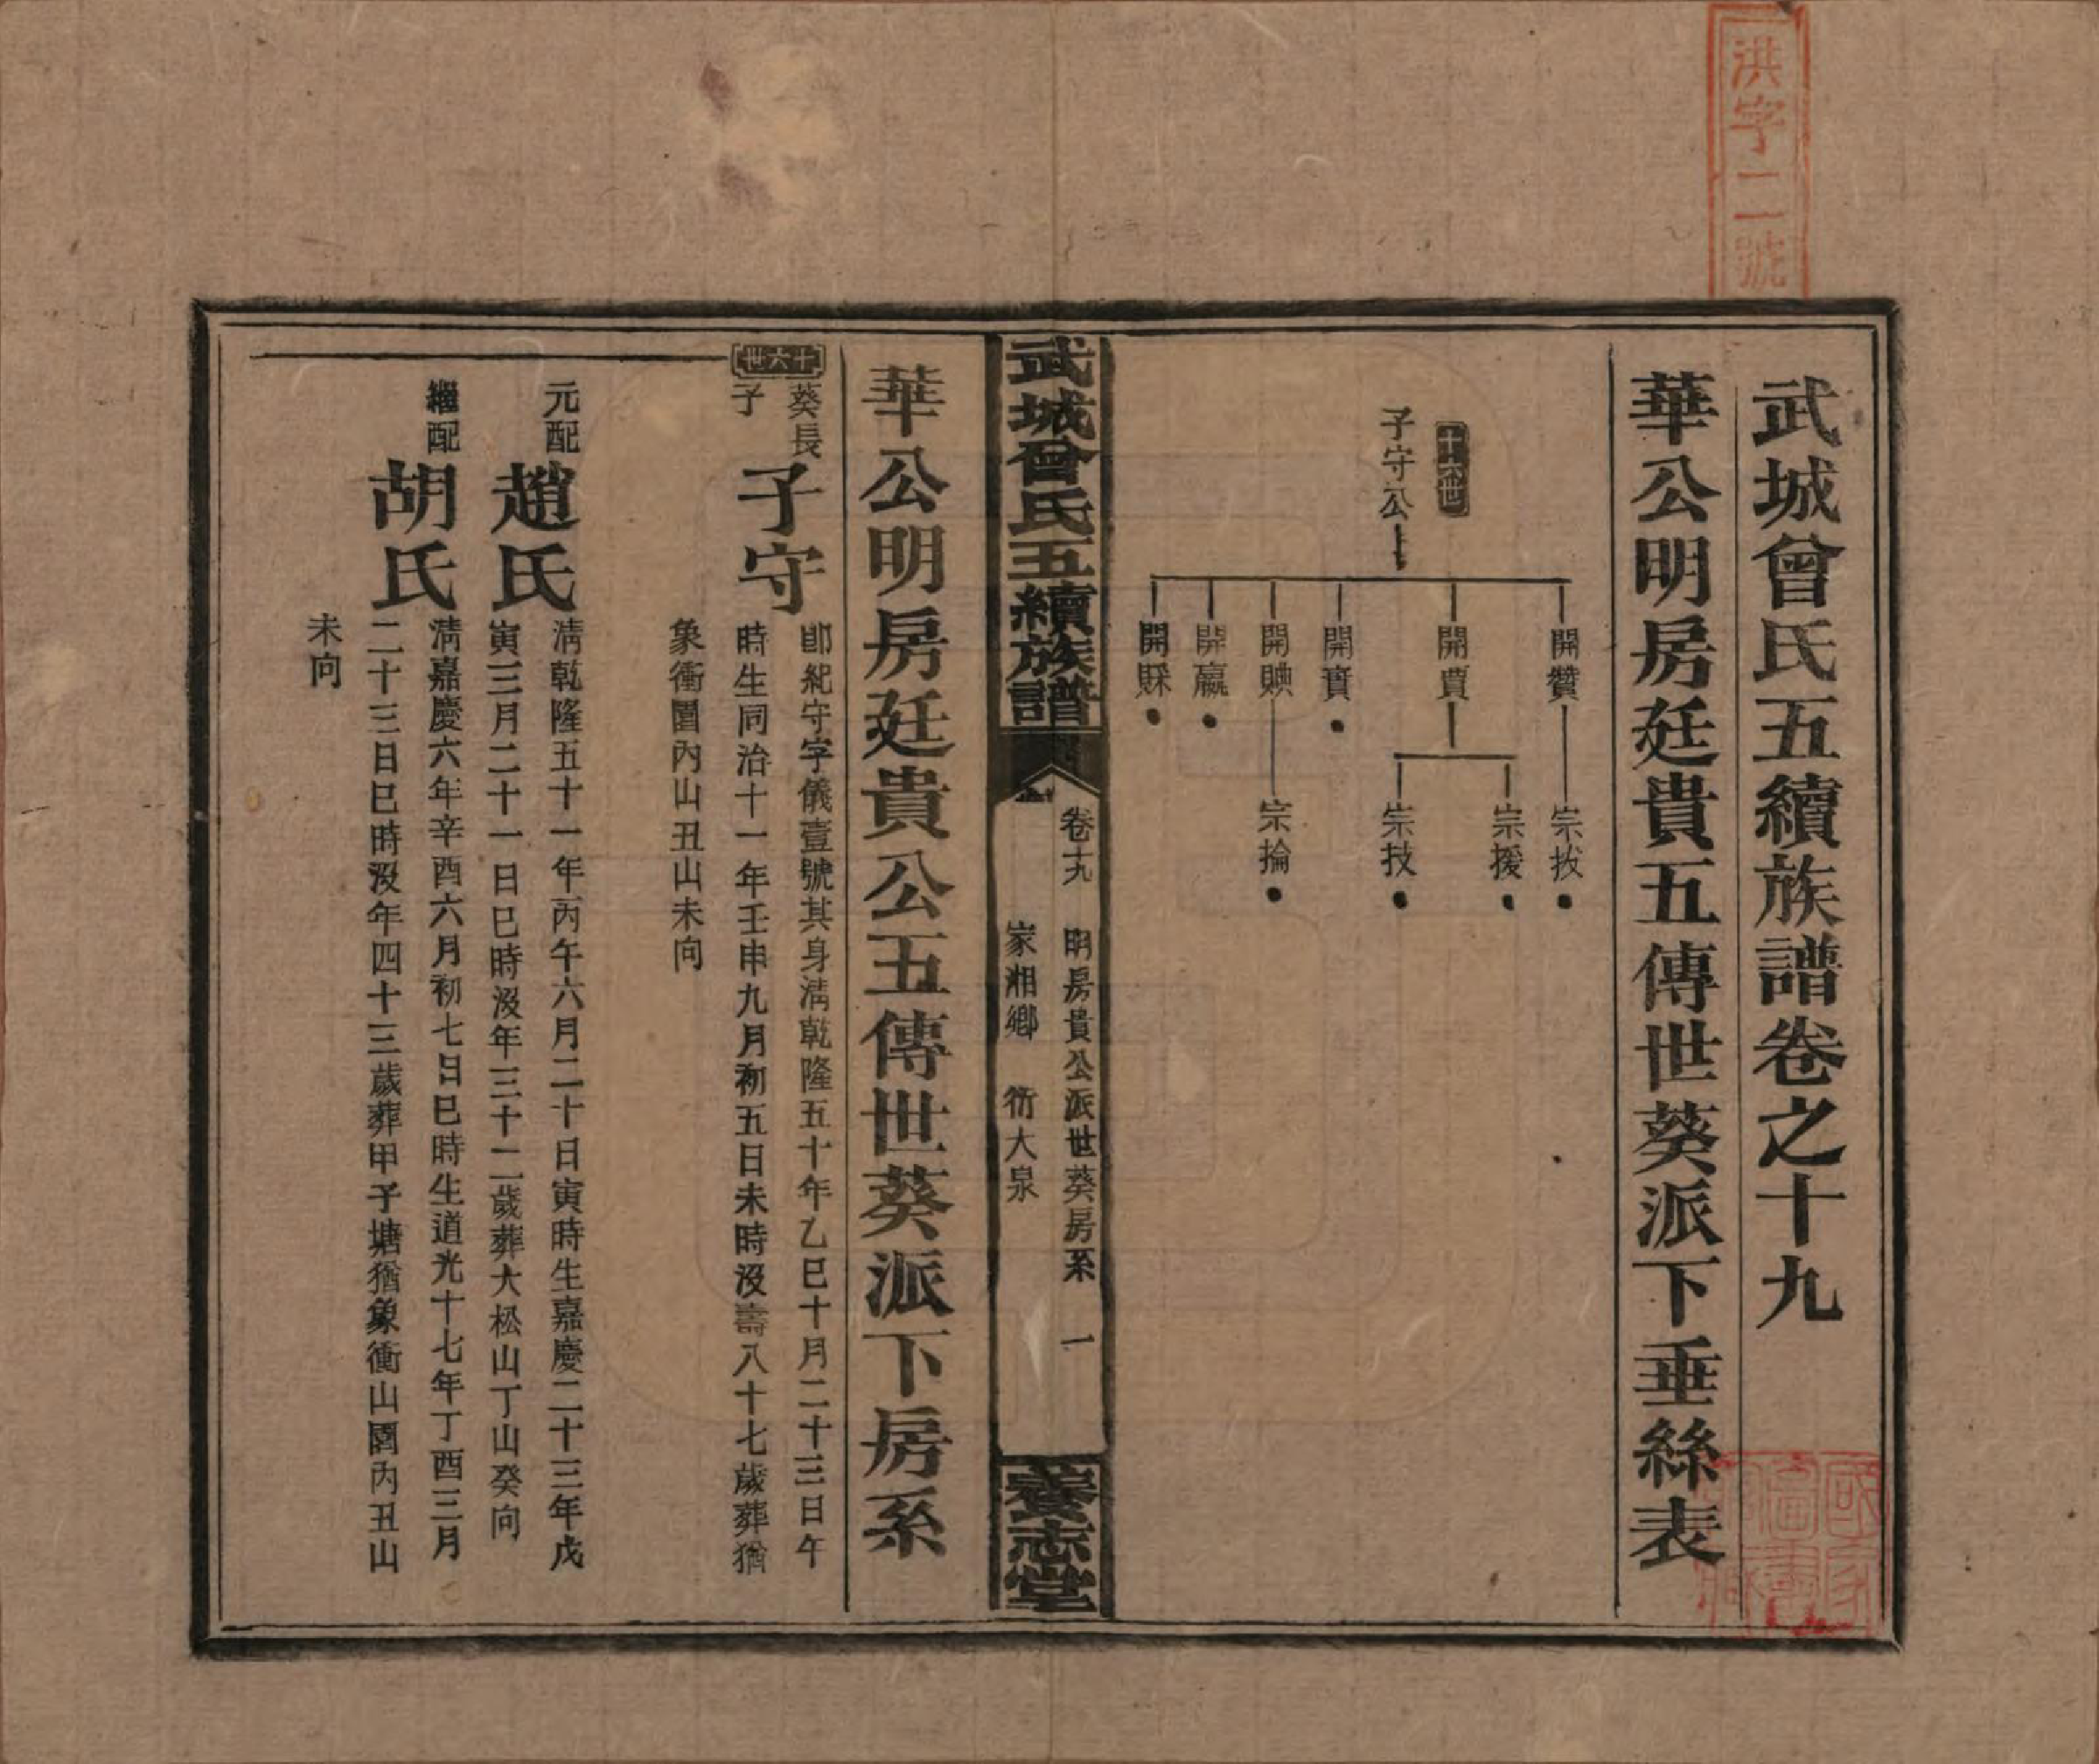 洪字二號
武城曾氏五續族譜卷之十九
華公明房廷貴五傳世葵派下垂絲表
十六世
子守公
開贊
開賁
開實
開賟
開贏
開賝
宗拔
宗援
宗技
宗掄
武城曾氏五續族譜
卷十九
明房貴公派世葵房系 一
家湘鄉 衎大泉
養志堂
華公明房廷貴公五傳世葵派下房系
十六世
葵長子
子守
卽紀守字儀壹號其身清乾隆五十年乙巳十月二十三日午
時生同治十一年壬申九月初五日未時沒壽八十七歲葬猶
象衝園內山丑山未向
元配
趙氏
清乾隆五十一年丙午六月二十日寅時生嘉慶二十三年戊
寅三月二十一日巳時沒年三十二歲葬大松山丁山癸向
繼配
胡氏
清嘉慶六年辛酉六月初七日巳時生道光十七年丁酉三月
二十三日巳時沒年四十三歲葬甲子塘猶象衝山園內丑山
未向